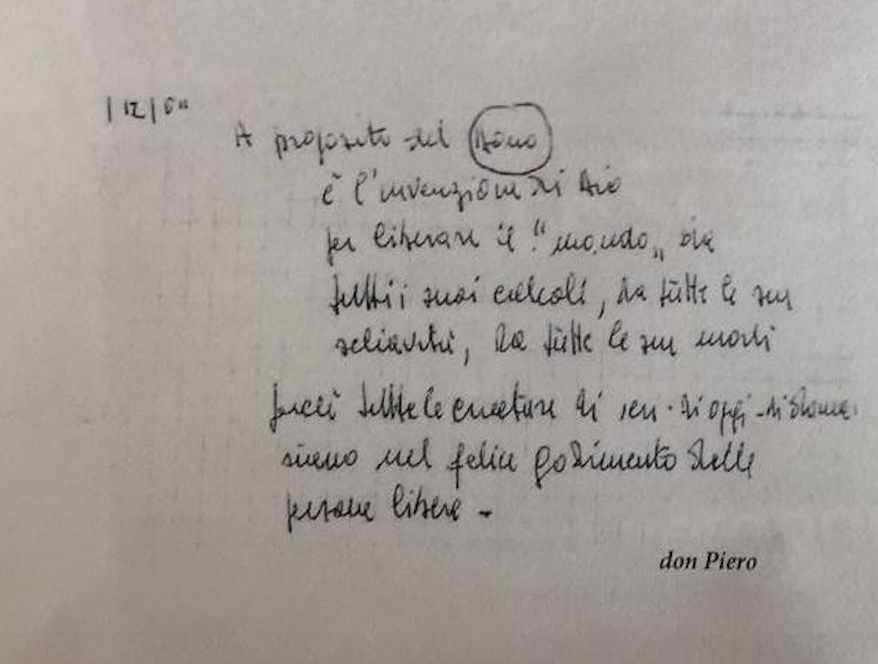 A proposito del Dono
è l'invenzione di Dio
per liberare il "mondo" da
tutti i suoi calcoli, da tutte le sue
schiavitù, da tutte le sue morti
perché tutte le creature di ieri - di oggi - di domani
siano nel felice godimento delle
persone libere -
don Piero